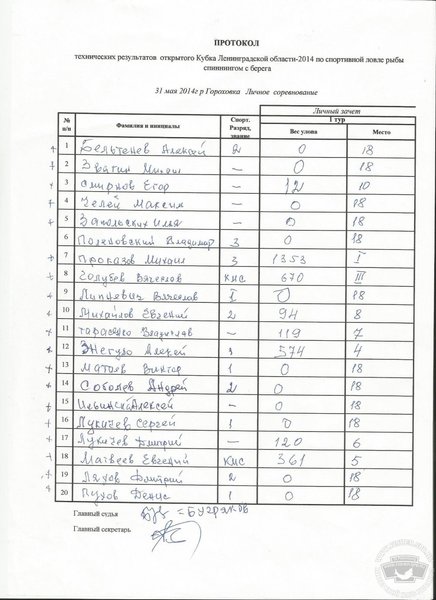 ПРОТОКОЛ
технических результатов открытого Кубка Ленинградской области-2014 по спортивной ловле рыбы
спиннингом с берега
31 мая 2014г р Гороховка Личное соревнование
Личный зачет
№ п/п Фамилия и инициалы Спорт. Разряд, звание 1 тур
Вес улова Место
1 Бельтенев Алексей 2 0 18
2 Звягин Михаил — 0 18
3 Смирнов Егор — 12 10
4 Челей Максим — 0 18
5 Запольских Илья — 0 18
6 Владимир 3 0 18
7 Проказов Михаил 3 1353 I
8 Голубев Вячеслав КМС 670 III
9 Вячеслав I 0 18
10 Михайлов Евгений 2 94 8
11 Тарасенко Владислав — 119 7
12 Алексей 1 574 4
13 Виктор 1 0 18
14 Соболев Андрей 2 0 18
15 Алексей — 0 18
16 Лукичев Сергей 1 0 18
17 Лукичев Дмитрий — 120 6
18 Матвеев Евгений КМС 361 5
19 Ляхов Дмитрий 2 0 18
20 Пухов Денис 1 0 18
Главный судья
Главный секретарь